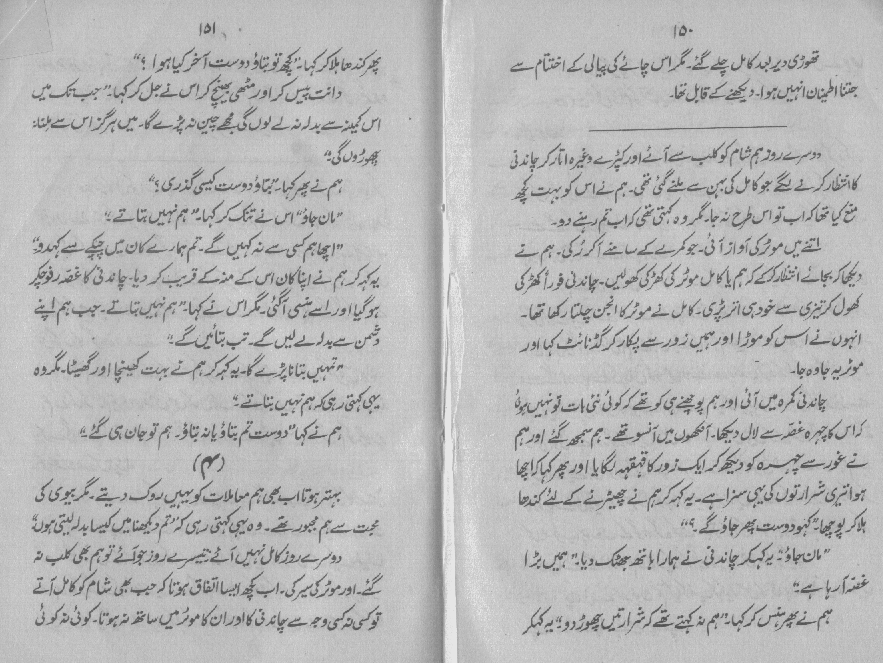 ۱۵۰
تھوڑی دیر بعد کامل چلے گئے۔ مگر اس چائے کی پیالی کے اختتام سے
جتنا اطمینان انہیں ہوا۔ دیکھنے کے قابل تھا۔
دوسرے روز ہم شام کو کلب سے آئے اور کپڑے وغیرہ اتار کر چاندنی
کا انتظار کرنے لگے جو کامل کی بہن سے ملنے گئی تھی۔ ہم نے اس کو بہت کچھ
منع کیا تھا کہ اب تو اس طرح نہ جا۔ مگر وہ کہتی تھی کہ اب تم رہنے دو۔
اتنے میں موٹر کی آواز آئی۔ جو کمرے کے سامنے آکر رُکی۔ ہم نے
دیکھا کہ بجائے انتظار کرنے کے ہم یا کامل موٹر کی کھڑکی کھولیں۔ چاندنی فوراً کھڑکی
کھول کر تیزی سے خود ہی اتر پڑی۔ کامل نے موٹر کا انجن چلتا رکھا تھا۔
انہوں نے اس کو موڑا اور ہمیں زور سے پکار کر گڈ نائٹ کہا اور
موٹر یہ جا وہ جا۔
چاندنی کمرہ میں آئی اور ہم پوچھنے ہی کو تھے کہ کوئی نئی بات تو نہیں ہوئی
کہ اس کا چہرہ غصّہ سے لال دیکھا۔ آنکھوں میں آنسو تھے۔ ہم سمجھ گئے اور ہم
نے غور سے چہرہ کو دیکھ کر ایک زور کا قہقہہ لگایا اور پھر کہا کہ اچھا
ہوا تیری شرارتوں کی یہی سزا ہے۔ یہ کہہ کر ہم نے چھیڑنے کے لئے کندھا
ہلا کر پوچھا۔ "کہو دوست پھر جاؤ گے۔؟"
"مان جاؤ"۔ یہ کہکر چاندنی نے ہمارا ہاتھ جھٹک دیا۔ "ہمیں بڑا
غصّہ آ رہا ہے"۔
ہم نے پھر ہنس کر کہا۔ "ہم نہ کہتے تھے کہ شرارتیں چھوڑ دو"۔ یہ کہکر
۱۵۱
پھر کندھا ہلا کر کہا۔ "کچھ تو بتاؤ دوست آخر کیا ہوا ؟"
دانت پیس کر اور مٹھی بھینچ کر اس نے جل کر کہا۔ "جب تک میں
اس کمینہ سے بدلہ نہ لے لوں گی مجھے چین نہ پڑے گا۔ میں ہرگز اس سے ملنا نہ
چھوڑوں گی"۔
ہم نے پھر کہا۔ "بتاؤ دوست کیسی گذری ؟"
"مان جاؤ" اس نے تنک کر کہا۔ "ہم نہیں بتاتے"۔
"اچھا ہم کسی سے نہ کہیں گے۔ تم ہمارے کان میں چپکے سے کہدو"
یہ کہہ کر ہم نے اپنا کان اس کے منہ کے قریب کر دیا۔ چاندنی کا غصّہ رفوچکر
ہو گیا اور اسے ہنسی آ گئی۔ مگر اس نے کہا۔ "ہم نہیں بتاتے۔ جب ہم اپنے
دشمن سے بدلہ لے لیں گے۔ تب بتائیں گے"۔
"تمہیں بتانا پڑے گا۔ یہ کہہ کر ہم نے بہت کھینچا اور گھسیٹا۔ مگر وہ
یہی کہتی رہی کہ ہم نہیں بتاتے"۔
ہم نے کہا "دوست تم بتاؤ یا نہ بتاؤ۔ ہم تو جان ہی گئے"۔
(۴)
بہتر ہوتا اب بھی ہم معاملات کو یہیں روک دیتے۔ مگر بیوی کی
محبت سے ہم مجبور تھے۔ وہ یہی کہتی رہی کہ "تم دیکھنا میں کیسا بدلہ لیتی ہوں"
دوسرے روز کامل نہیں آئے تیسرے روز جو آئے تو ہم بھی کلب نہ
گئے۔ اور موٹر کی سیر کی۔ اب کچھ ایسا اتفاق ہوتا کہ جب بھی شام کو کامل آتے
تو کسی نہ کسی وجہ سے چاندنی کا اور ان کا موٹر میں ساتھ نہ ہوتا۔ کوئی نہ کوئی